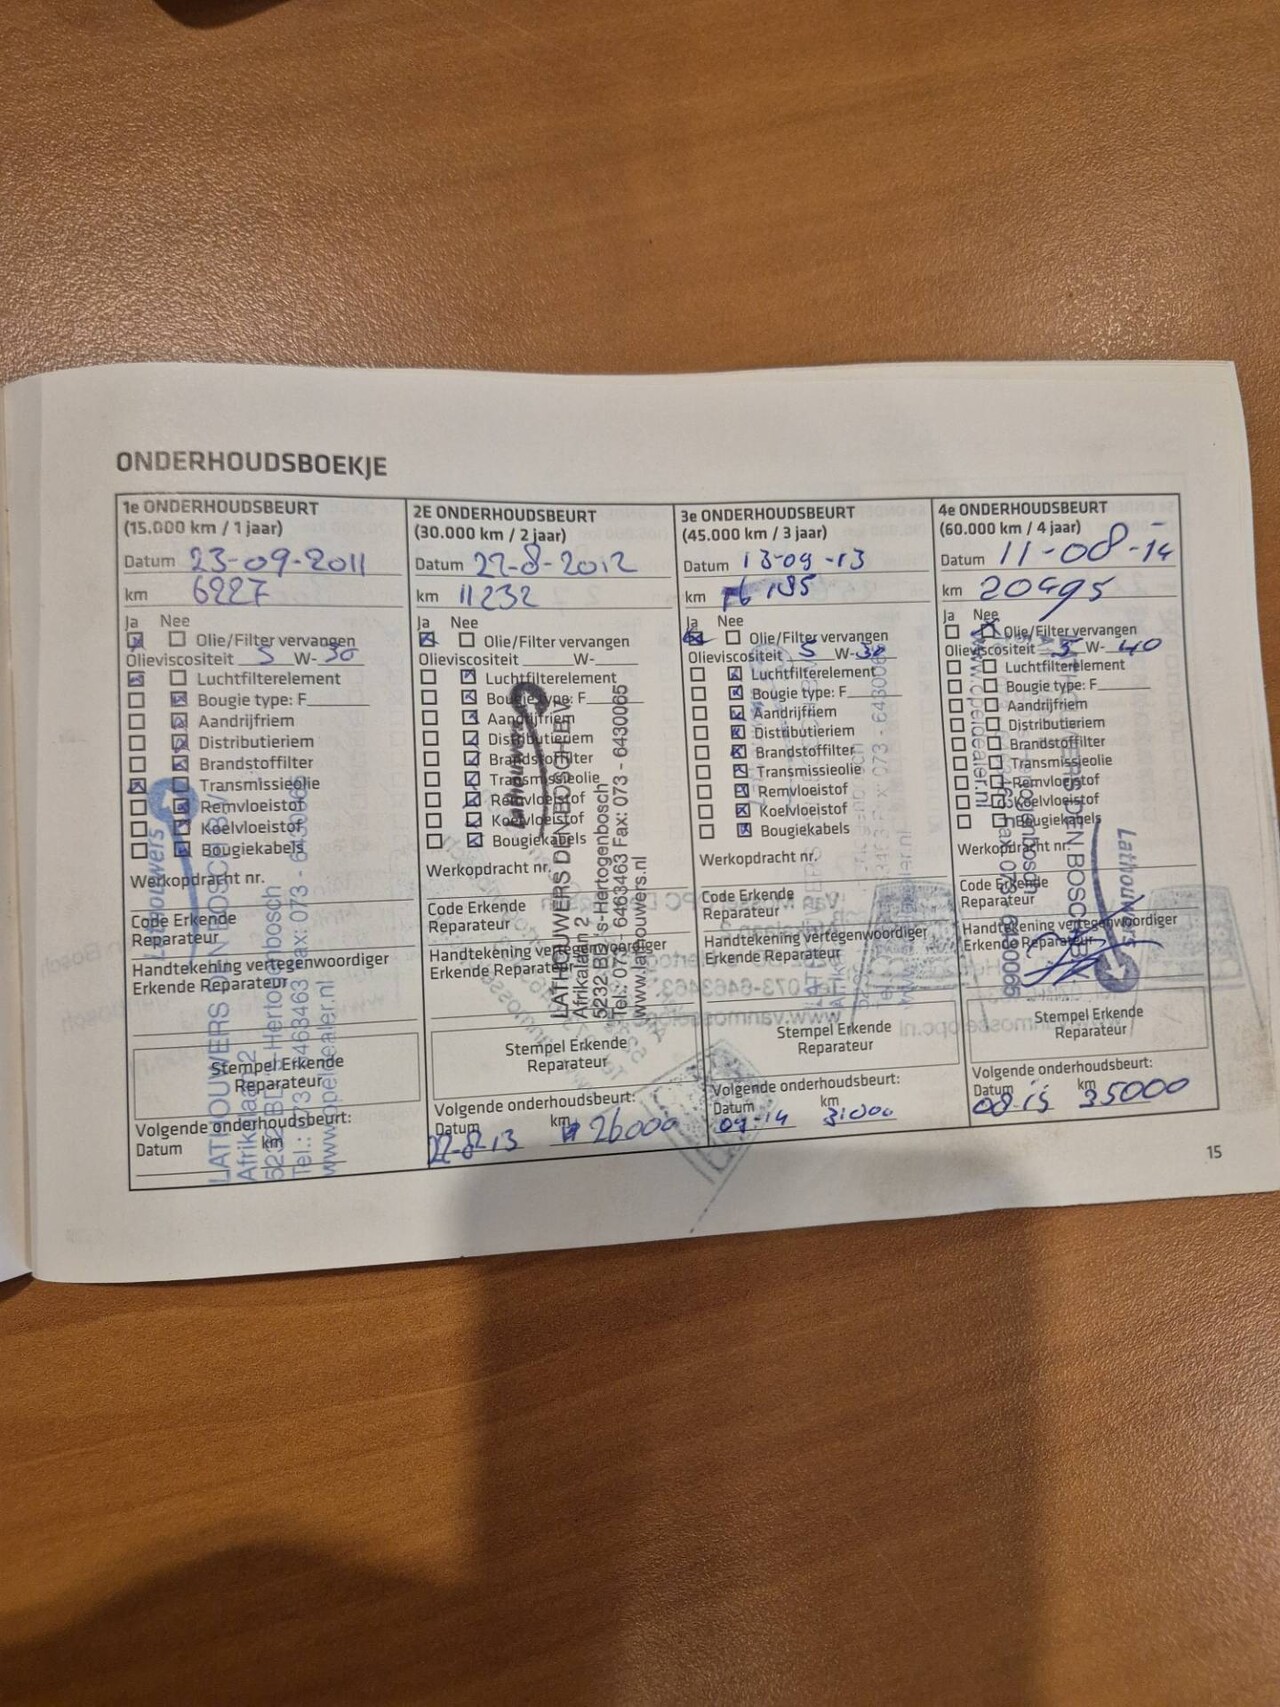 ONDERHOUDSBOEKJE
1e ONDERHOUDSBEURT
(15.000 km / 1 jaar)
Datum 23-09-2011
km 6227
Ja Nee
Olie/Filter vervangen
Olieviscositeit 5 W-30
Luchtfilterelement
Bougie type: F
Aandrijfriem
Distributieriem
Brandstoffilter
Transmissieolie
Remvloeistof
Koelvloeistof
Bougiekabels
Werkopdracht nr.
Code Erkende
Reparateur
Handtekening vertegenwoordiger
Erkende Reparateur
Stempel Erkende
Reparateur
Volgende onderhoudsbeurt:
Datum km
Lathouwers
LATHOUWERS DEN BOSCH BV
Afrikalaan 2
5232 BD 's-Hertogenbosch
Tel.: 073 - 6463463 Fax: 073 -
www.opeldealer.nl
2E ONDERHOUDSBEURT
(30.000 km / 2 jaar)
Datum 22-8-2012
km 11232
Ja Nee
Olie/Filter vervangen
Olieviscositeit W-
Luchtfilterelement
Bougie type: F
Aandrijfriem
Distributieriem
Brandstoffilter
Transmissieolie
Remvloeistof
Koelvloeistof
Bougiekabels
Werkopdracht nr.
Code Erkende
Reparateur
Handtekening vertegenwoordiger
Erkende Reparateur
Stempel Erkende
Reparateur
Volgende onderhoudsbeurt:
Datum km
22-8-13 26000
Lathouwers
LATHOUWERS DEN BOSCH BV
Afrikalaan 2
5232 BD 's-Hertogenbosch
Tel.: 073 - 6463463 Fax: 073 - 6430065
www.lathouwers.nl
3e ONDERHOUDSBEURT
(45.000 km / 3 jaar)
Datum 13-09-13
km
Ja Nee
Olie/Filter vervangen
Olieviscositeit 5 W-30
Luchtfilterelement
Bougie type: F
Aandrijfriem
Distributieriem
Brandstoffilter
Transmissieolie
Remvloeistof
Koelvloeistof
Bougiekabels
Werkopdracht nr.
Code Erkende
Reparateur
Handtekening vertegenwoordiger
Erkende Reparateur
Stempel Erkende
Reparateur
Volgende onderhoudsbeurt:
Datum km
09-14 31000
4e ONDERHOUDSBEURT
(60.000 km / 4 jaar)
Datum 11-08-14
km 20495
Ja Nee
Olie/Filter vervangen
Olieviscositeit 5 W-40
Luchtfilterelement
Bougie type: F
Aandrijfriem
Distributieriem
Brandstoffilter
Transmissieolie
Remvloeistof
Koelvloeistof
Bougiekabels
Werkopdracht nr.
Code Erkende
Reparateur
Handtekening vertegenwoordiger
Erkende Reparateur
Stempel Erkende
Reparateur
Volgende onderhoudsbeurt:
Datum km
08-15 35000
Lathouwers
DEN BOSCH BV
www.opeldealer.nl
15